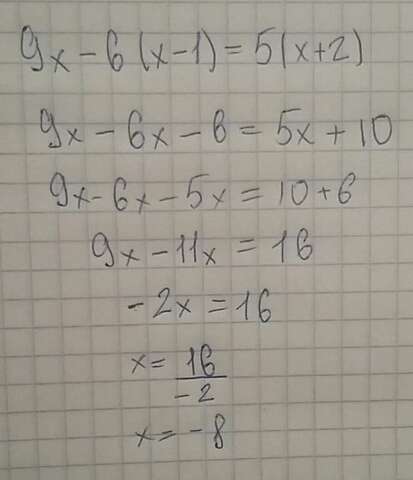 9x - 6(x-1) = 5(x+2)
9x - 6x - 6 = 5x + 10
9x - 6x - 5x = 10 + 6
9x - 11x = 16
-2x = 16
x = 16/-2
x = -8